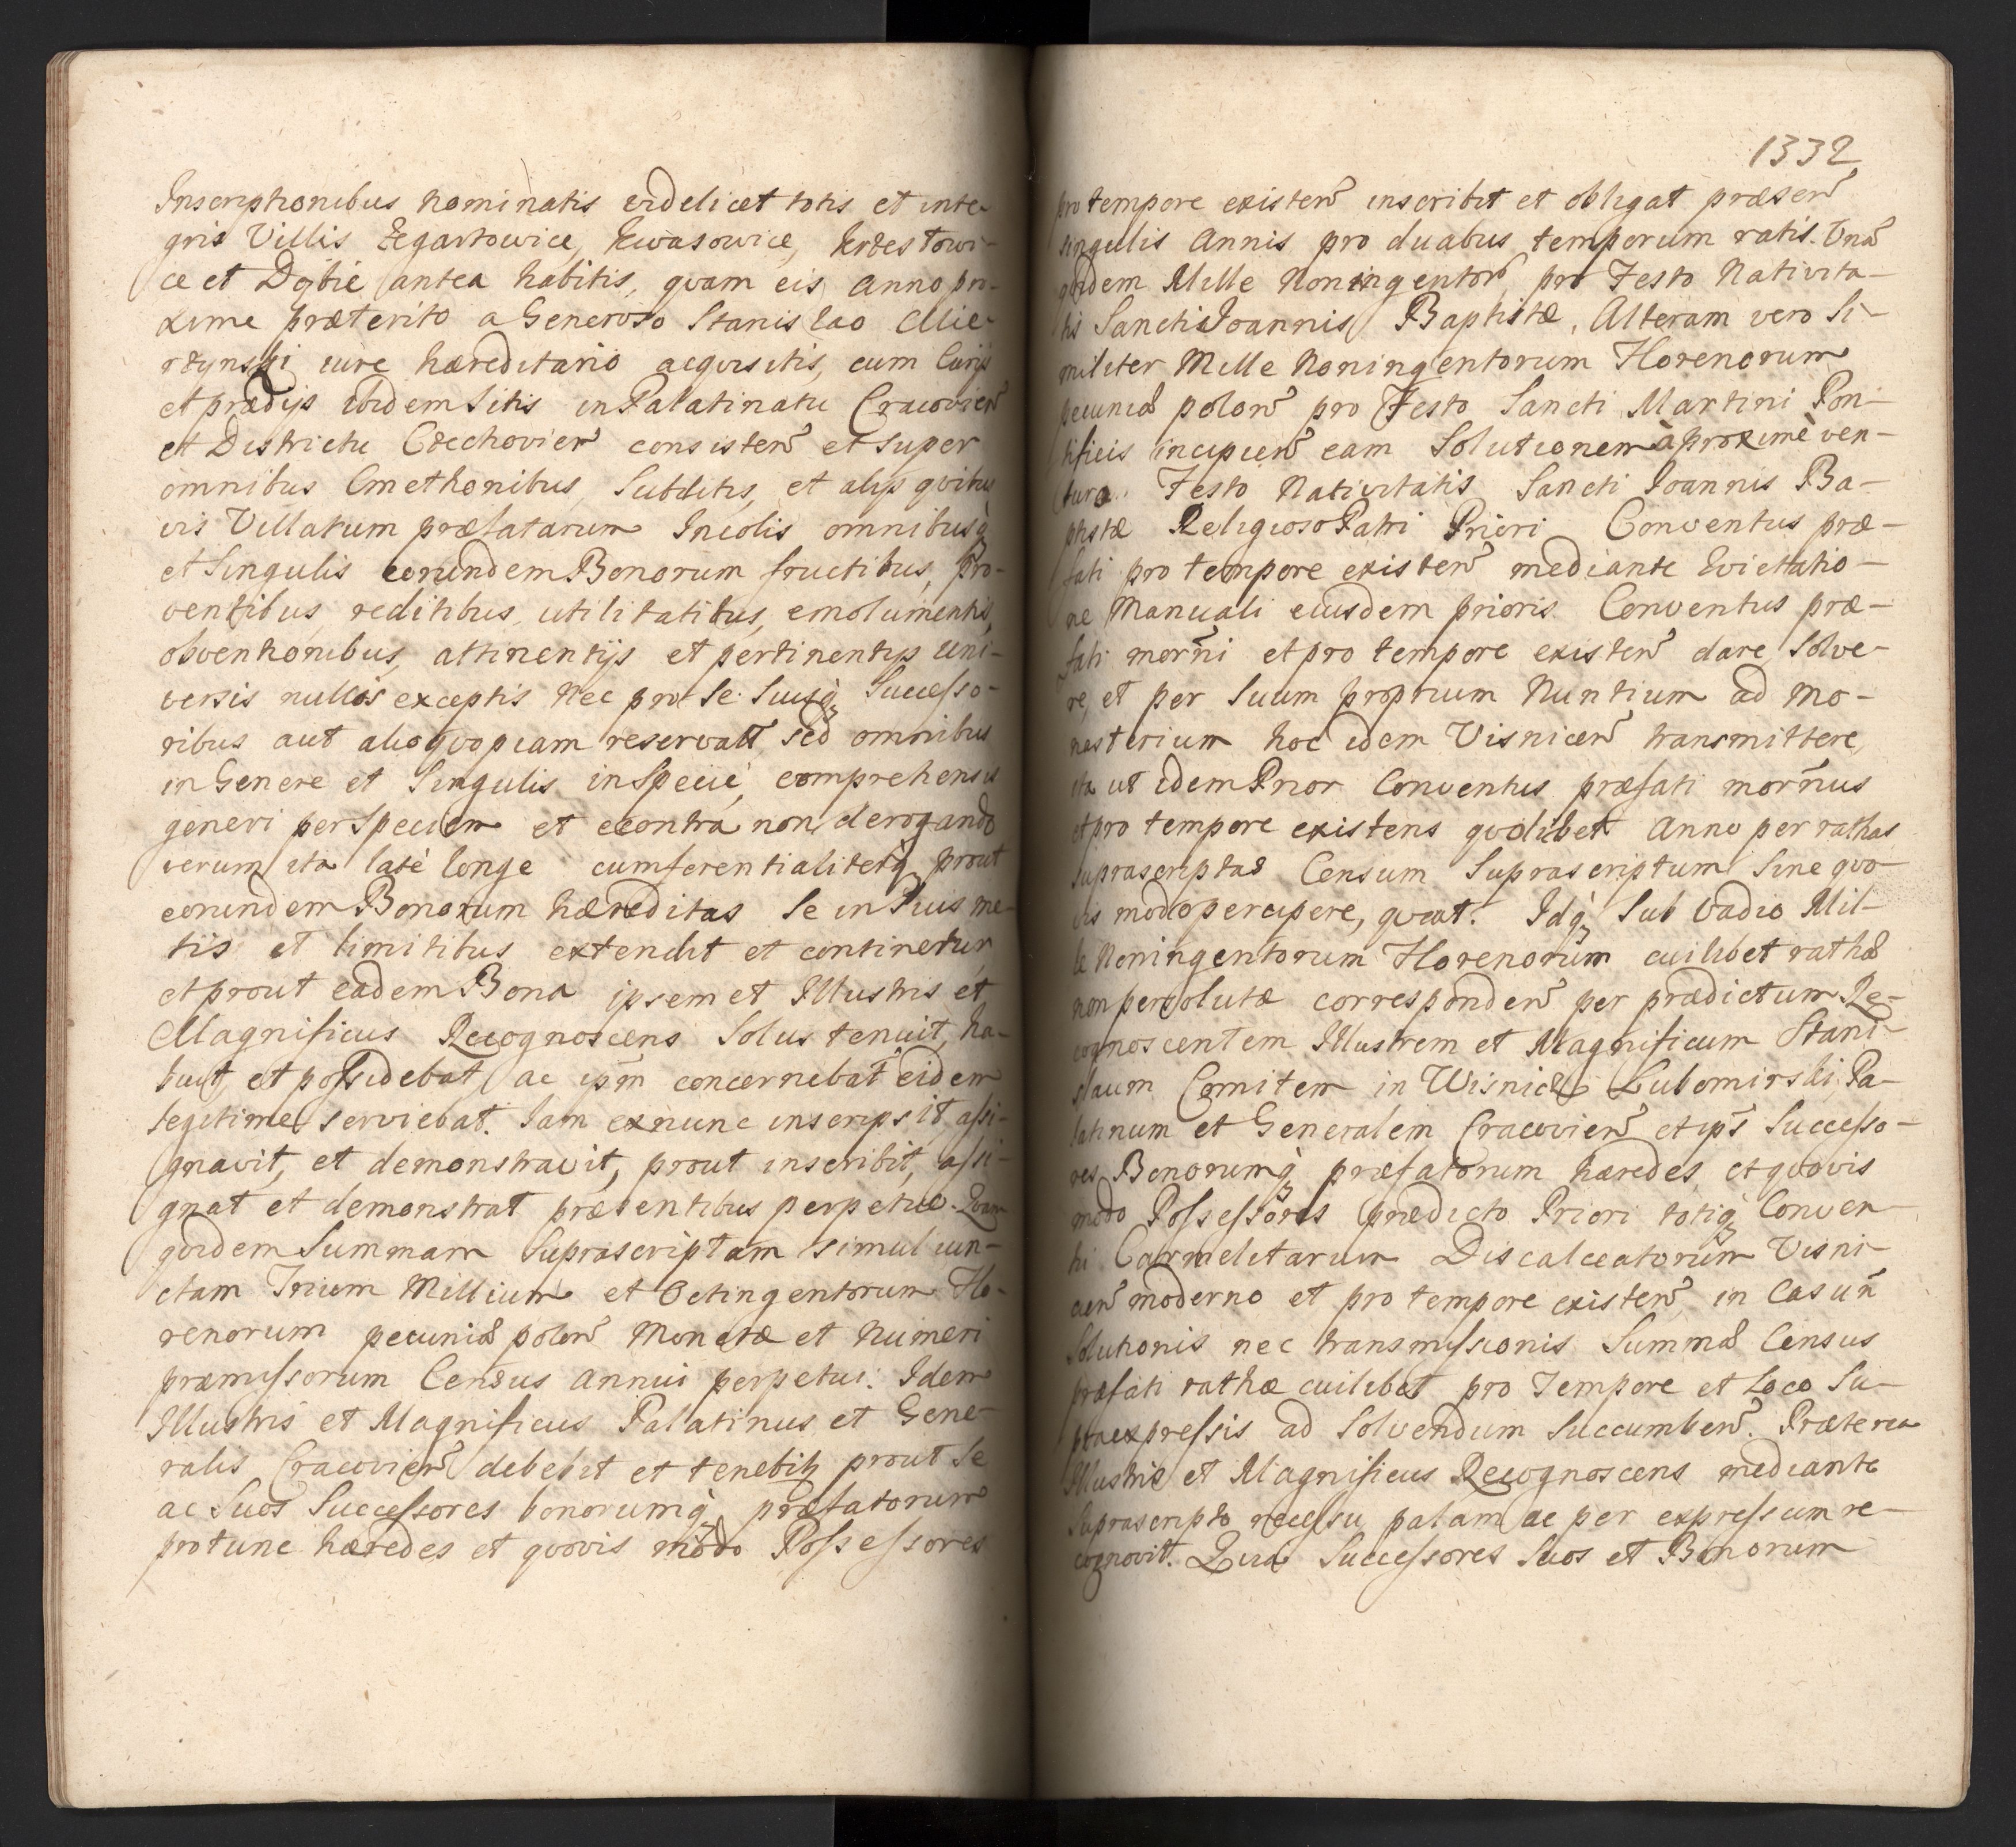 Inscriptionibus nominatis videlicet totis et inte-
gris Villis Zegartowice, Kwasowice, Krzestowi-
ce et Dębie antea habitis, quam eis Anno pro-
xime præterito a Generoso Stanislao Mie-
rzynski iure hæreditario acquisitis, cum Curijs
et prædijs ibidem sitis in Palatinatu Cracovien̄
et Districtu Czechovien̄ consisten̄ et super
omnibus Cmethonibus, Subditis, et alijs quibus
vis Villarum præfatarum Incolis omnibusq̨
et Singulis eorundem Bonorum fructibus, pro-
ventibus, reditibus, utilitatibus, emolumentis,
obventionibus, attinentijs et pertinentijs uni-
versis nullis exceptis Nec pro Se Suisq̨ Successo-
ribus aut alio quopiam reservatt̄ sed omnibus
in Genere et Singulis in Specie, comprehensis
generi per Speciem et econtra non derogando
verum ita latè longe cumferentialiterq̨ prout
eorundem Bonorum hæreditas Se in Suis me-
tis et limitibus extendit et continetur
et prout eadem Bona ipsemet Illustris et
Magnificus Recognoscens Solus tenuit, ha-
buit, et possidebat ac ipm̄ concernebat eidem
legitime serviebat. Iam exnunc inscripsit assi-
gnavit, et demonstravit, prout inscribit, assi-
gnat et demonstrat præsentibus perpetue. Quam
quidem Summam Suprascriptam simul iun-
ctam Trium Millium et Octingentorum Flo-
renorum pecuniæ polon̄ Monetæ et Numeri
præmissorum Census Annui perpetui. Idem
Illustris et Magnificus Palatinus et Gene-
ralis Cracovien̄ debebit et tenebit̨ prout Se
ac Suos Successores bonorumq̨ præfatorum
protunc hæredes et quovis modo Possessores
1332
pro tempore existen̄ inscribit et obligat præsen̄
singulis Annis pro duabus temporum ratis. Unā
quidem Mille Noningentor̄ pro Festo Nativita-
tis Sancti Joannis Baptistæ, Alteram vero Si-
militer Mille Noningentorum Florenorum
pecuniæ polon̄ pro Festo Sancti Martini Pon-
tificis incipien̄ eam Solutionem à proximè ven-
turo Festo Nativitatis Sancti Joannis Ba-
ptistæ Religioso Patri Priori Conventus præ-
fati pro tempore existen̄ mediante Quietatio-
ne Manuali eiusdem prioris Conventus præ-
fati mor̄ni et pro tempore existen̄ dare, Solve-
re, et per Suum proprium Nuntium ad Mo-
nasterium hoc idem Visnicen̄ transmittere,
ita ut idem Prior Conventus præfati mor̄nus
et pro tempore existens quolibet Anno per rathas
suprascriptas Censum Suprascriptum Sine quo-
vis modo percipere, queat. Idq̨ Sub Vadio Mil-
le Noningentorum Florenorum cuilibet rathæ
non persolutæ corresponden̄ per prædictum Re-
cognoscentem Illustrem et Magnificum Stani-
slaum Comitem in Wisnicz Lubomirski Pa-
latinum et Generalem Cracovien̄ et ips̄ Successo-
res Bonorumq̨ præfatorum hæredes, et quovis
modo Possessores prædicto Priori totiq̨ Conven-
ti Carmelitarum Discalceatorum Visni-
cen̄ moderno et pro tempore existen̄ in Casu n̄
Solutionis nec transmissionis Summæ Census
præfati rathæ cuilibet pro Tempore et Loco Su-
praexpressis ad Solvendum Succumben̄. Præterea
Illustris et Magnificus Recognoscens mediante
Suprascripto recessu palam ac per expressum re-
cognovit. Quia Successores Suos et Bonorum